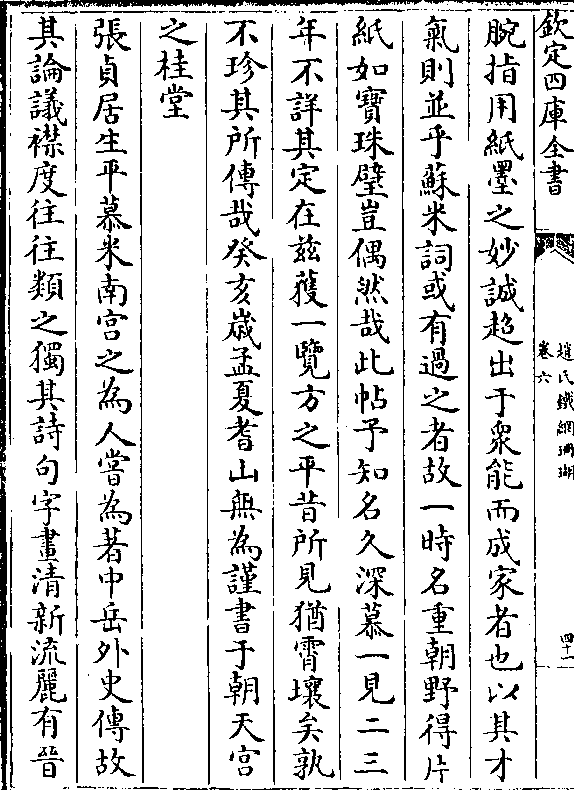 欽定四庫全書
趙氏鐵網珊瑚
卷六
四十一
腕指用紙墨之妙誠超出于衆能而成家者也以其才
氣則並乎蘇米詞或有過之者故一時名重朝野得片
紙如寶珠璧豈偶然哉此帖予知名久深慕一見二三
年不詳其定在兹獲一覽方之平昔所見猶霄壤矣孰
不珍其所傳哉癸亥嵗孟夏耆山無為謹書于朝天宫
之桂堂
張貞居生平慕米南宫之為人嘗為著中岳外史傳故
其論議襟度往往類之獨其詩句字畫清新流麗有晉